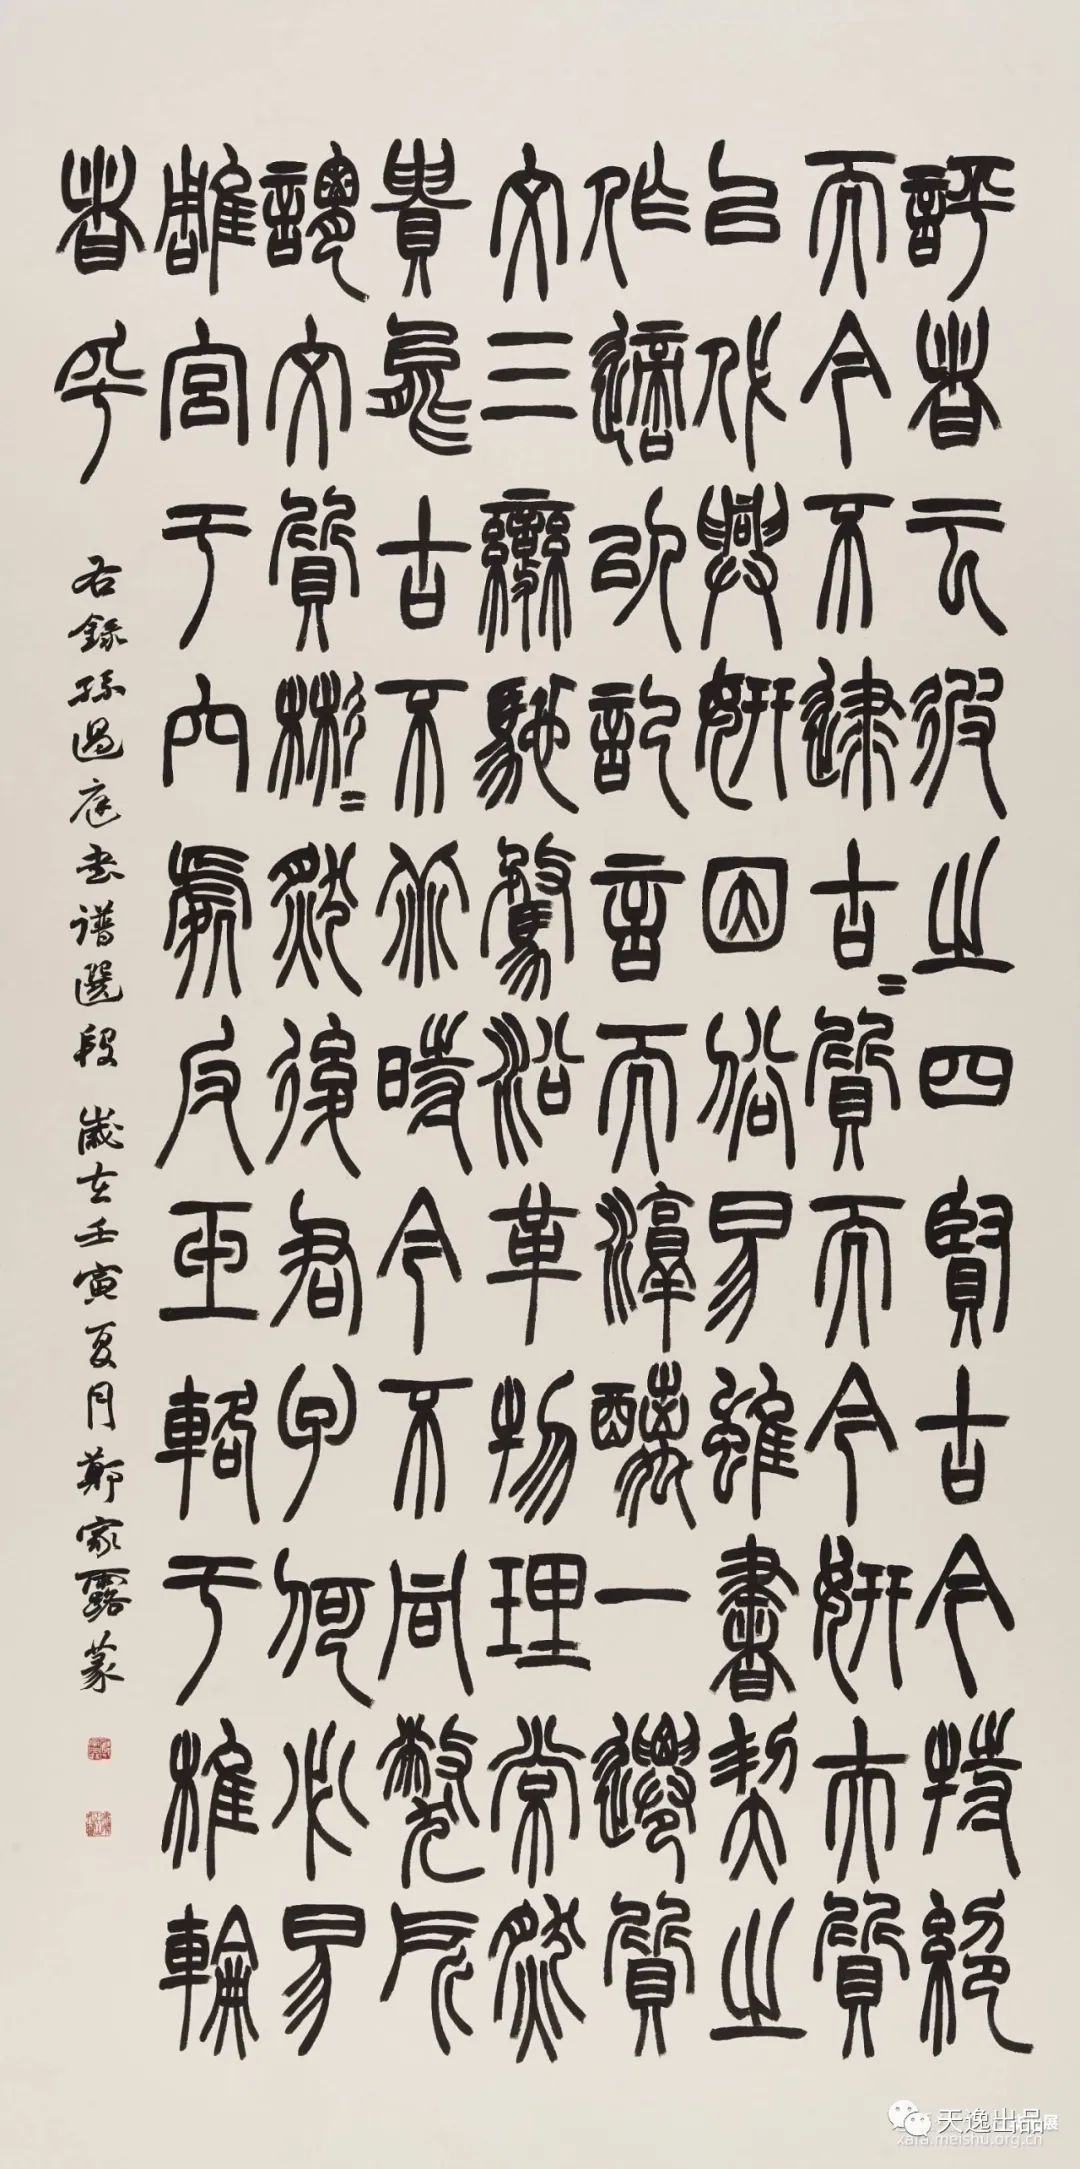 評者云彼之四賢古今特絕
而今不逮古=質而今妍夫質
以代興妍因俗易雖書契之
作適以記言而淳醨一遷質
文三變馳騖沿革物理常然
貴能古不乖時今不同弊所
謂文質彬=然後君子何必易
雕宮于穴處反玉輅于椎輪
者乎
右錄孫過庭书譜選段 歲在壬寅夏月鄭家露篆
天逸出品
展
xafa.meishu.org.cn